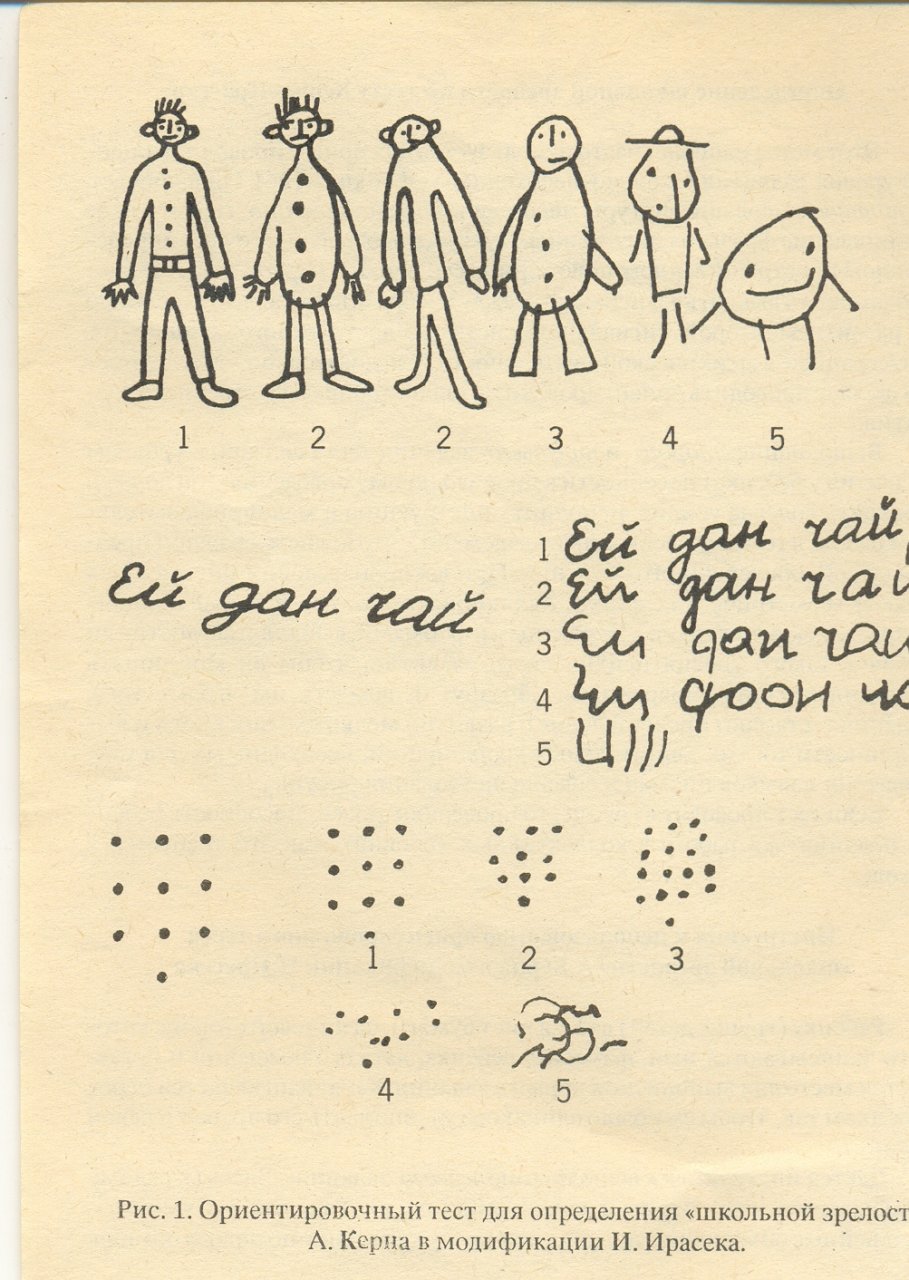 1 2 2 3 4 5
Ей дан чай
1 Ей дан чай
2 Ей дан чай
3 Еи дан чаи
4
5
1 2 3
4 5
Рис. 1. Ориентировочный тест для определения «школьной зрелост
А. Керна в модификации И. Ирасека.